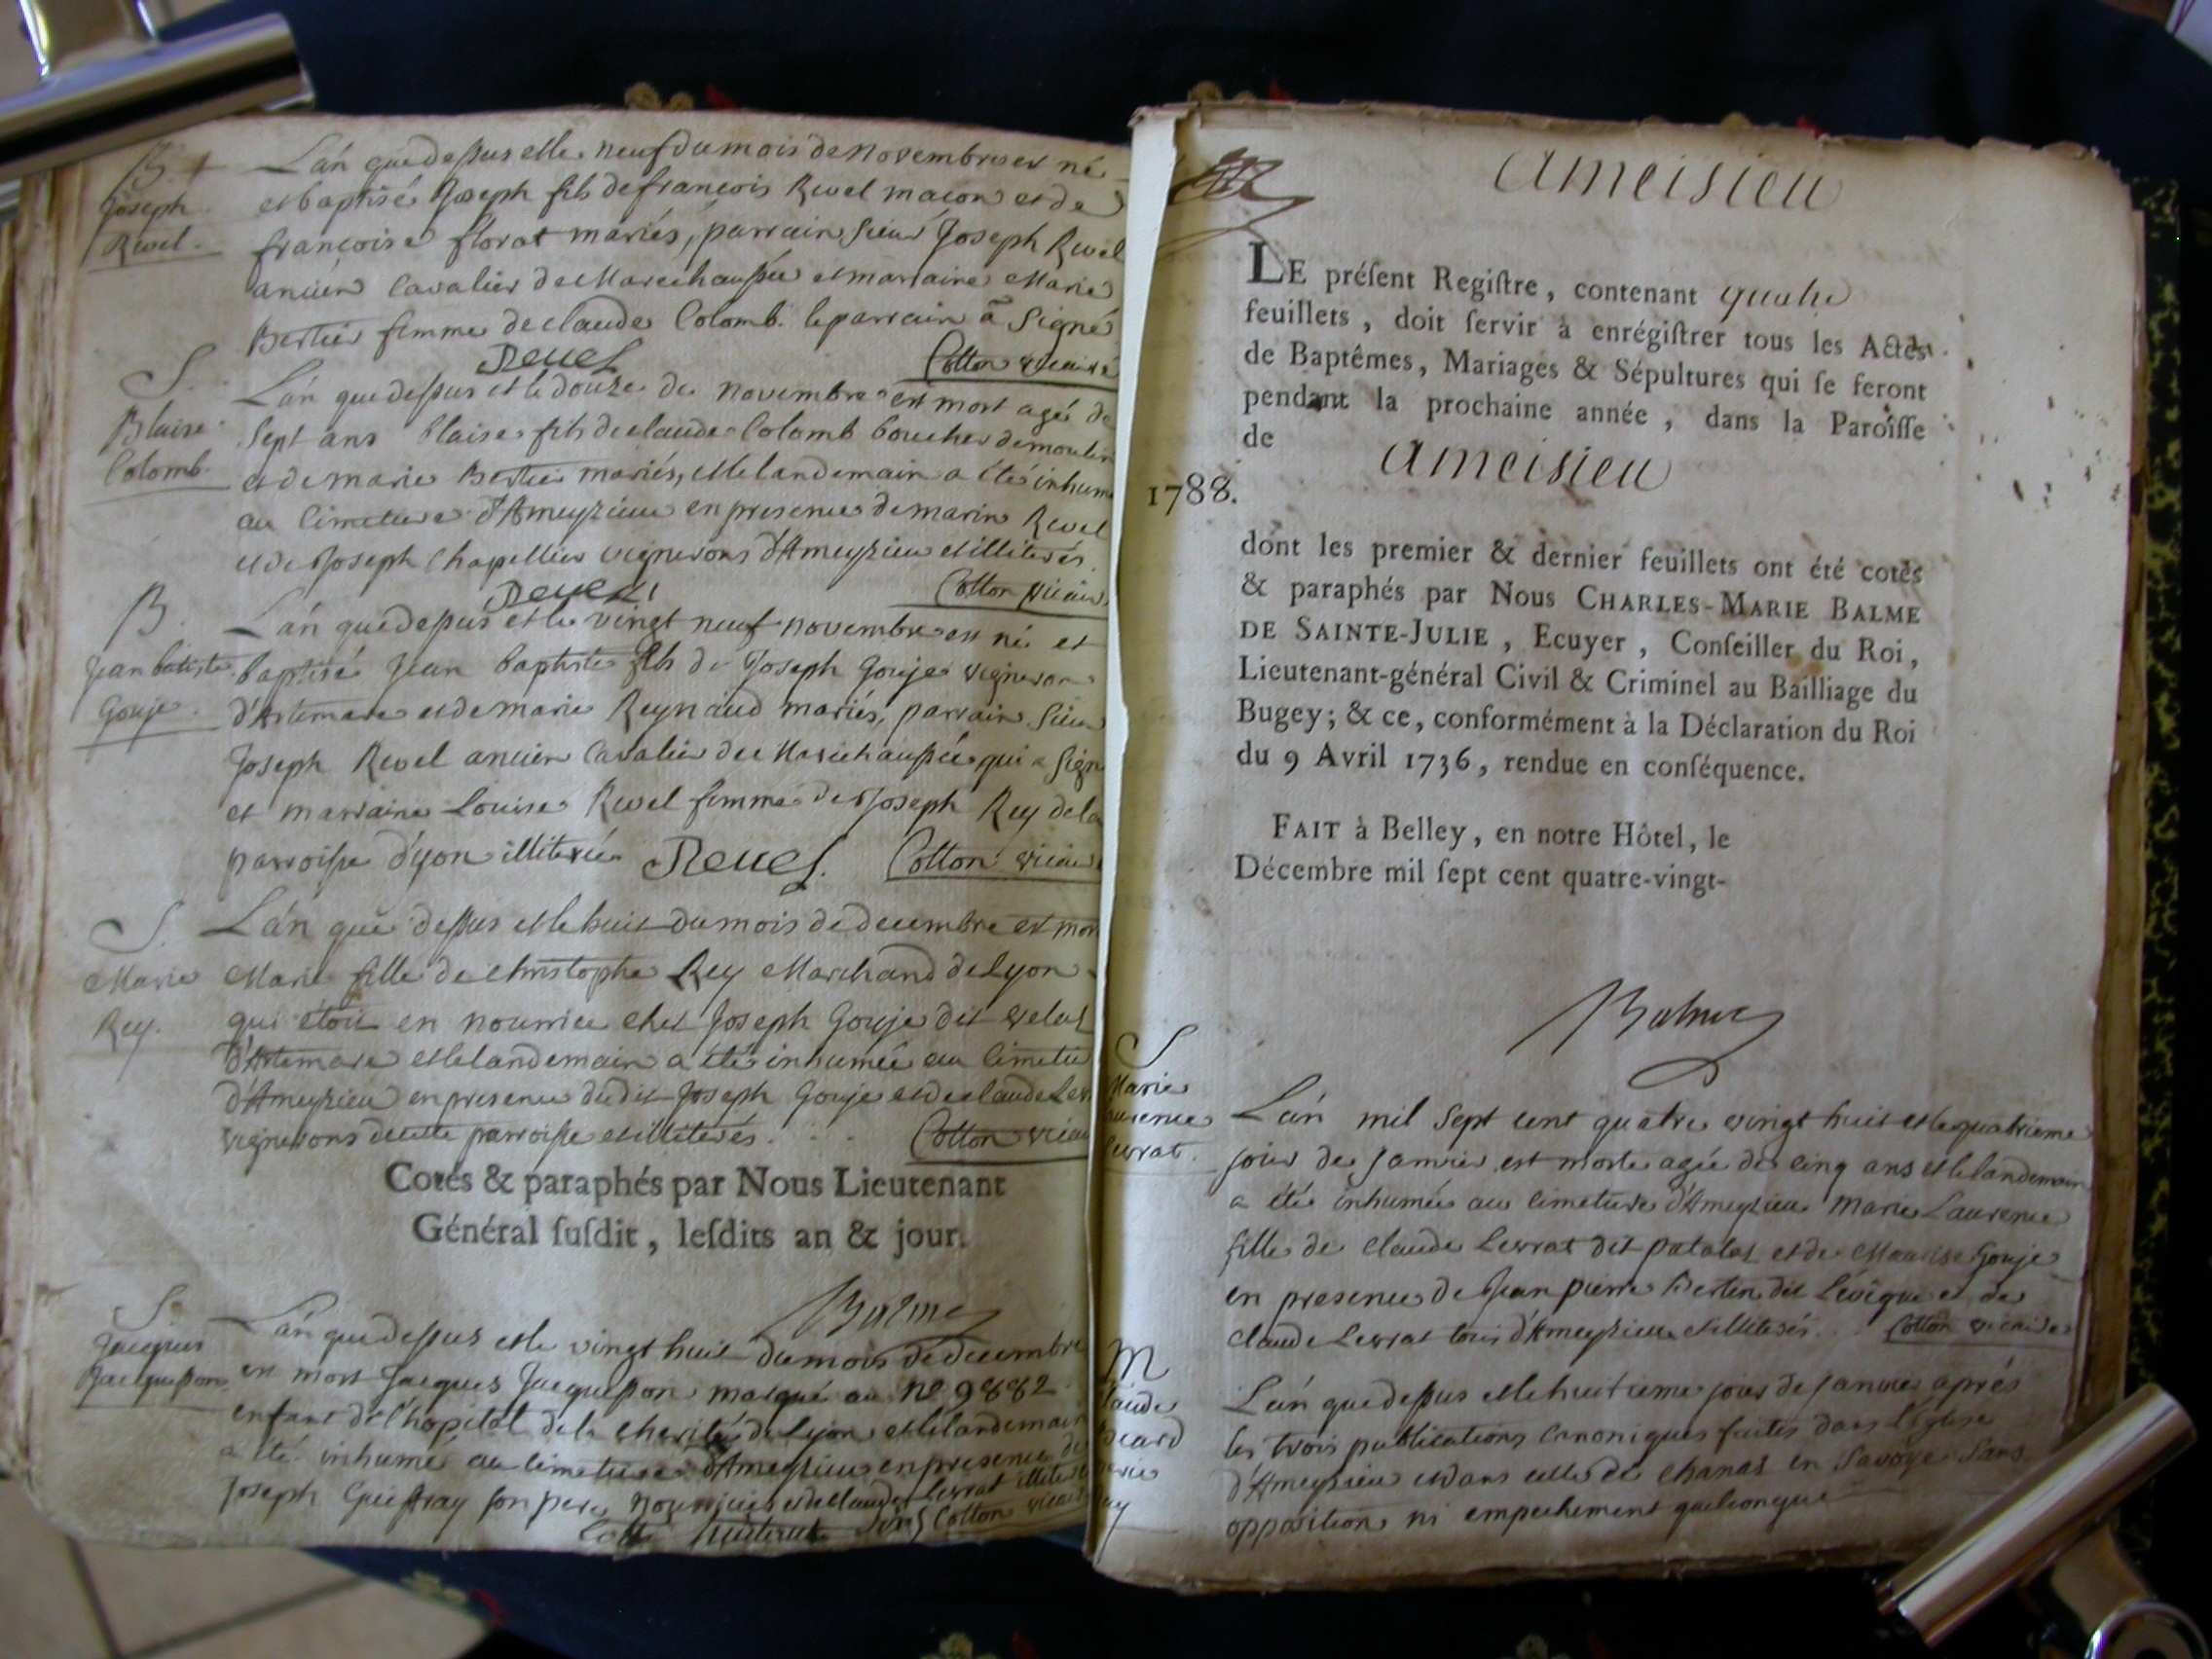 B.
Joseph
Revel.
L'an que dessus et le neuf du mois de novembre est né
et baptisé Joseph fils de françois Revel macon et de
françoise florat mariés, parrain sieur Joseph Revel
ancien Cavalier de Marechaussée et marraine Marie
Bertier femme de claude Colomb. le parrain a Signé
Revel Cotton vicaire
S.
Blaise
Colomb.
L'an que dessus et le douze de novembre est mort agé de
Sept ans blaise fils de claude Colomb boucher
et de marie Bertier mariés, et le landemain a été inhumé
au Cimetiere d'Ameyzieu en presence de marin Revel
et de Joseph Chapellier vignerons d'Ameyzieu et illiterés.
Revel Cotton vicaire
B.
Jean batiste
Gouje.
L'an que dessus et le vingt neuf novembre est né et
baptisé Jean baptiste fils de Joseph Gouje vigneron
d'Artemare et de marie Reynaud mariés, parrain Sieur
Joseph Revel ancien Cavalier de Marechaussée qui a Signé
et marraine Louise Revel femme de Joseph Rey de la
parroisse d'yon illiterée Revel. Cotton vicaire
S.
Marie
Rey.
L'an que dessus et le huit du mois de decembre est mor
Marie fille de christophe Rey Marchand de Lyon
qui étoit en nourrice chez Joseph Gouje dit velat
d'Artemare et le landemain a été inhumée au Cimetie
d'Ameyzieu en presence dudit Joseph Gouje et de claude Lev
vignerons de cette parroisse et illiterés. . . . Cotton vicai
Cotés & paraphés par Nous Lieutenant
Général susdit, lesdits an & jour.
Balme
S.
Jacques
Jacquesson
L'an que dessus et le vingt huit du mois de decembre
est mort Jacques Jacquesson marqué au N° 9882
enfant de l'hopital de la charité de Lyon et le landemain
a été inhumé au cimetiere d'Ameyzieu en presence de
Joseph son pere nourricier et de claude Levrat illiterés
Cotton vicaire
Ameisieu
LE préſent Regiſtre, contenant quatre
feuillets, doit ſervir à enrégiſtrer tous les Actes
de Baptêmes, Mariages & Sépultures qui ſe feront
pendant la prochaine année, dans la Paroiſſe
de Ameisieu
1788.
dont les premier & dernier feuillets ont été cotés
& paraphés par Nous CHARLES-MARIE BALME
DE SAINTE-JULIE, Ecuyer, Conſeiller du Roi,
Lieutenant-général Civil & Criminel au Bailliage du
Bugey; & ce, conformément à la Déclaration du Roi
du 9 Avril 1736, rendue en conſéquence.
FAIT à Belley, en notre Hôtel, le
Décembre mil ſept cent quatre-vingt-
Balme
S
Marie
aurence
evrat.
L'an mil Sept cent quatre vingt huit et le quatrieme
jour de Janvier est morte agée de cinq ans et le landemain
a été inhumée au cimetiere d'Ameyzieu Marie Laurence
fille de claude Levrat dit patalat et de Maurise Gouje
en presence de Jean pierre Bertin dit Levêque et de
claude Levrat tous d'Ameyzieu et illiterés. . . Cotton vicaire
M
laude
L'an que dessus et le huitieme jour de Janvier aprés
les trois publications canoniques faites dans l'église
d'Ameyzieu et dans celle de Chanat en Savoye Sans
opposition ni empechement quelconque